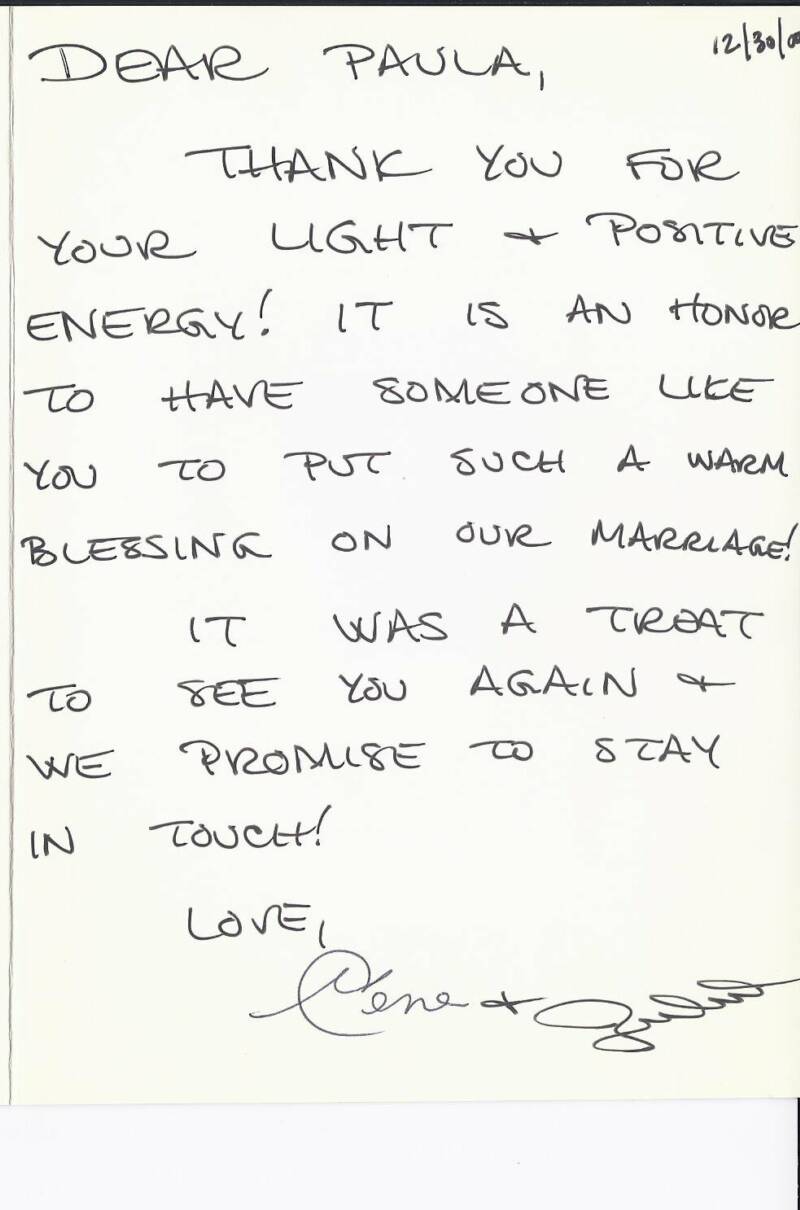 12/30/0
DEAR PAULA,
THANK YOU FOR
YOUR LIGHT + POSITIVE
ENERGY! IT IS AN HONOR
TO HAVE SOMEONE LIKE
YOU TO PUT SUCH A WARM
BLESSING ON OUR MARRIAGE!
IT WAS A TREAT
TO SEE YOU AGAIN +
WE PROMISE TO STAY
IN TOUCH!
LOVE,
+